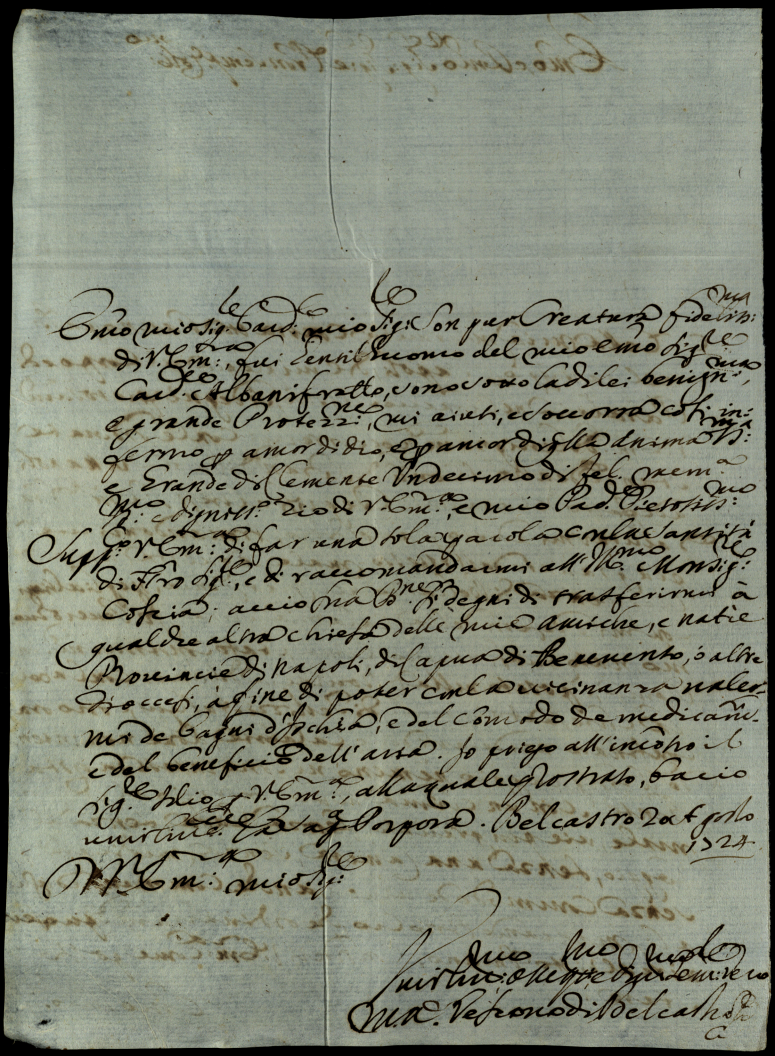 Emo mio Sig.re Card.le mio Sig.re Son pur Creatura fidelis.ma
di V. Em.za, fui Gentil Huomo del mio emo Sig.re
Card.le Albani fratello, sono sotto la di lei benign.ma,
e grande Protez.ne, mi aiuti, e soccorra così in-
fermo p amor di dio, e p amor di q.lla Anima S.ma
e Grande di Clemente Undecimo di fel. mem.a
e digniss.o Zio di V. Em.za, e mio Pad.ne Pietosiss.mo
Supp.co V. Em.za di far una sola parola con la Santità
di Nro Sig.re, e di raccomandarmi all' Ill.mo Monsig.re
Coscia, acciò si degni di trasferirmi à
qualche altra chiesa delle mie antiche, e natie
Provincie di Napoli, di Capua di Benevento, ò altre
diocesi, à fine di poter con la vicinanza valer-
mi de bagni d'Ischia, e del comodo de medicam.ti
e del beneficio dell'aria. Io priego all'incontro il
Sig.re Idio p V. Em.za, alla quale prostrato, bacio
umilm.te la sag.a Porpora. Belcastro 2 Agosto
1724
D V. Em.za mio Sig.re
Umiliss.mo
M.A. Vescovo di Belcastro